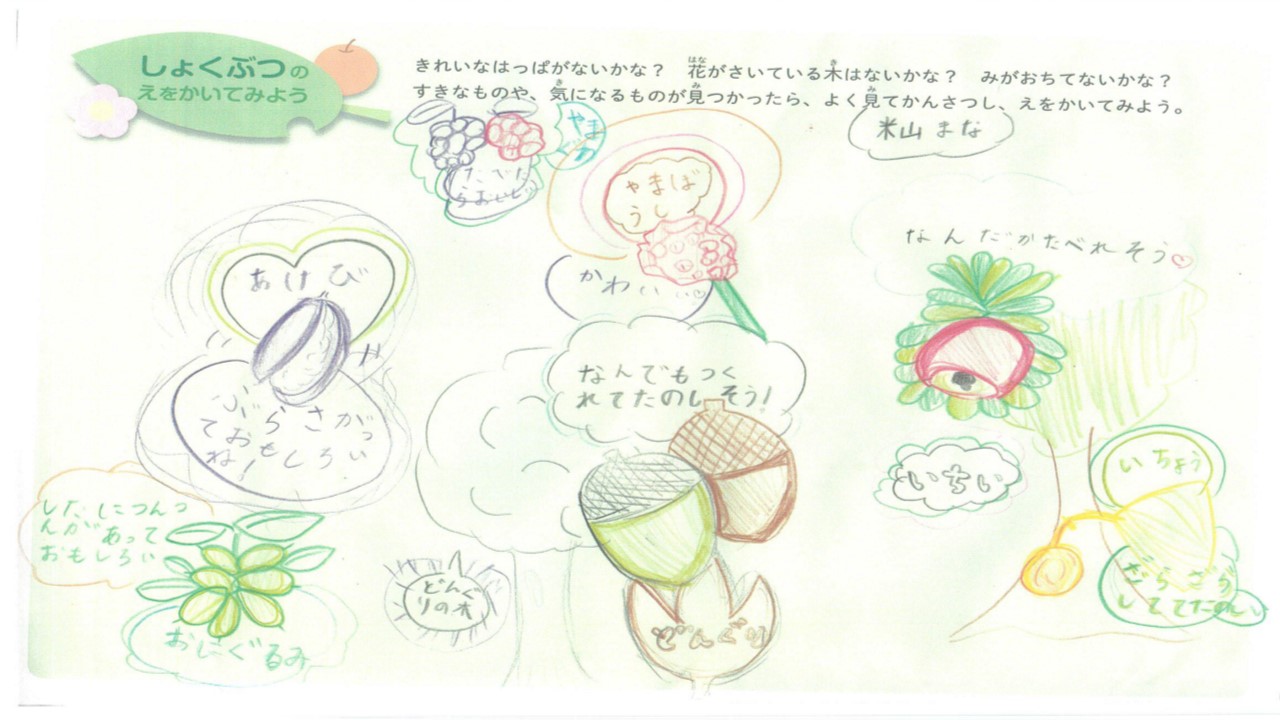 しょくぶつの
えをかいてみよう
きれいなはっぱがないかな？　花がさいている木はないかな？　みがおちてないかな？
すきなものや、気になるものが見つかったら、よく見てかんさつし、えをかいてみよう。
米山 まな
やま
ぐわ
たべた
らおいし
やまぼ
うし
かわいい♡
なんだかたべれそう♡
あけび
ぶらさがっ
ておもしろい
ね!
なんでもつく
れてたのしそう!
いちい
いちょう
ざらざら
しててたのしい
したにつんつ
んがあって
おもしろい
おにぐるみ
どんぐ
りの木
どんぐり